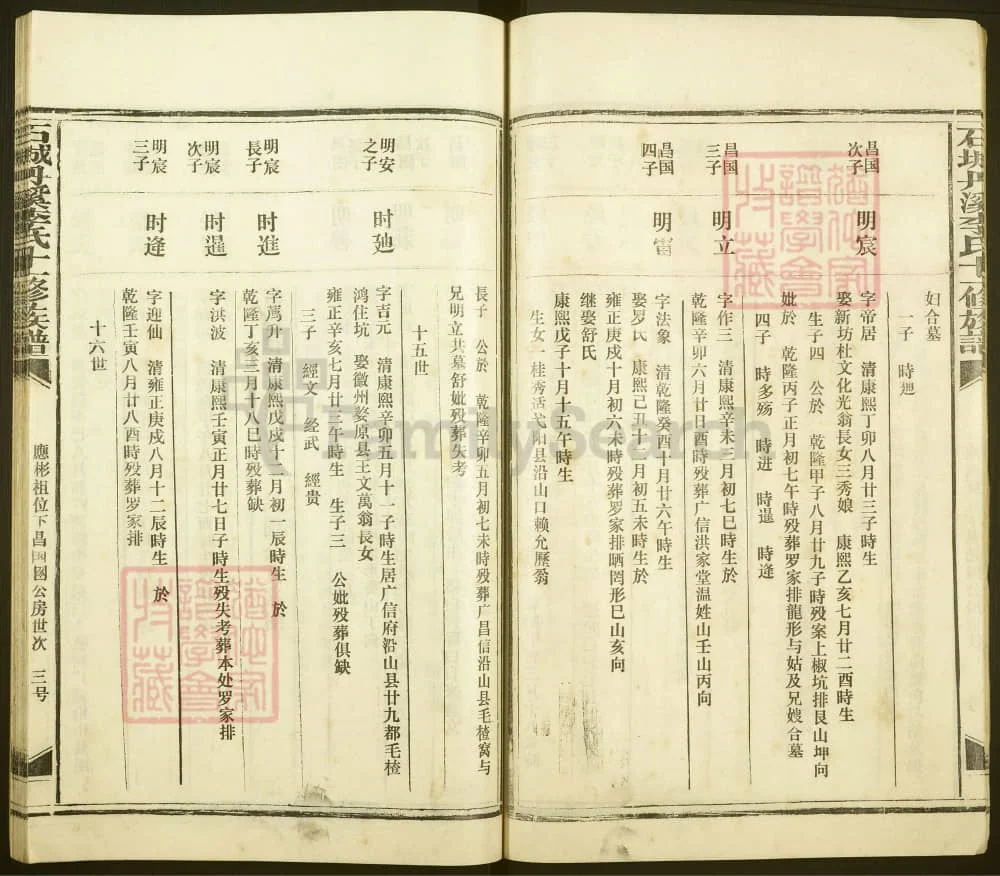 石城丹溪李氏十一修族譜
妇合墓
一子 時廻
昌国次子
明宸
字帝居 清康熙丁卯八月廿三子時生
娶新坊杜文化光翁長女三秀娘 康熙乙亥七月廿二酉時生
生子四 公於 乾隆甲子八月廿九子時殁案上椒坑排艮山坤向
妣於 乾隆丙子正月初七午時殁葬罗家排龍形与姑及兄嫂合墓
四子 時多殇 時进 時暹 時逢
昌国三子
明立
字作三 清康熙辛未三月初七巳時生於
乾隆辛卯六月廿日酉時殁葬广信洪家堂温姓山壬山丙向
昌国四子
明雷
字法象 清乾隆癸酉十月廿六午時生
娶罗氏 康熙己丑十二月初五未時生於
雍正庚戌十月初六未時殁葬罗家排晒罔形巳山亥向
继娶舒氏
康熙戊子十月十五午時生
生女一桂秀活弋阳县沿山口赖允歷翁
長子 公於 乾隆辛卯五月初七未時殁葬广昌信沿山县毛楂窝与
兄明立共墓舒妣殁葬失考
十五世
明安之子
时廸
字吉元 清康熙辛卯五月十一子時生居广信府沿山县廿九都毛楂
鸿住坑 娶徽州婺原县王文萬翁長女
雍正辛亥七月廿三午時生 生子三 公妣殁葬俱缺
三子 經文 经武 經贵
明宸長子
时進
字萬升 清康熙戊戌十二月初一辰時生 於
乾隆丁亥三月十八巳時殁葬缺
明宸次子
时暹
字洪波 清康熙壬寅正月廿七日子時生殁失考葬本处罗家排
明宸三子
时逢
字迎仙 清雍正庚戌八月十二辰時生 於
乾隆壬寅八月廿八酉時殁葬罗家排
十六世
石城丹溪李氏十一修族譜
應彬祖位下昌国图公房世次 三号